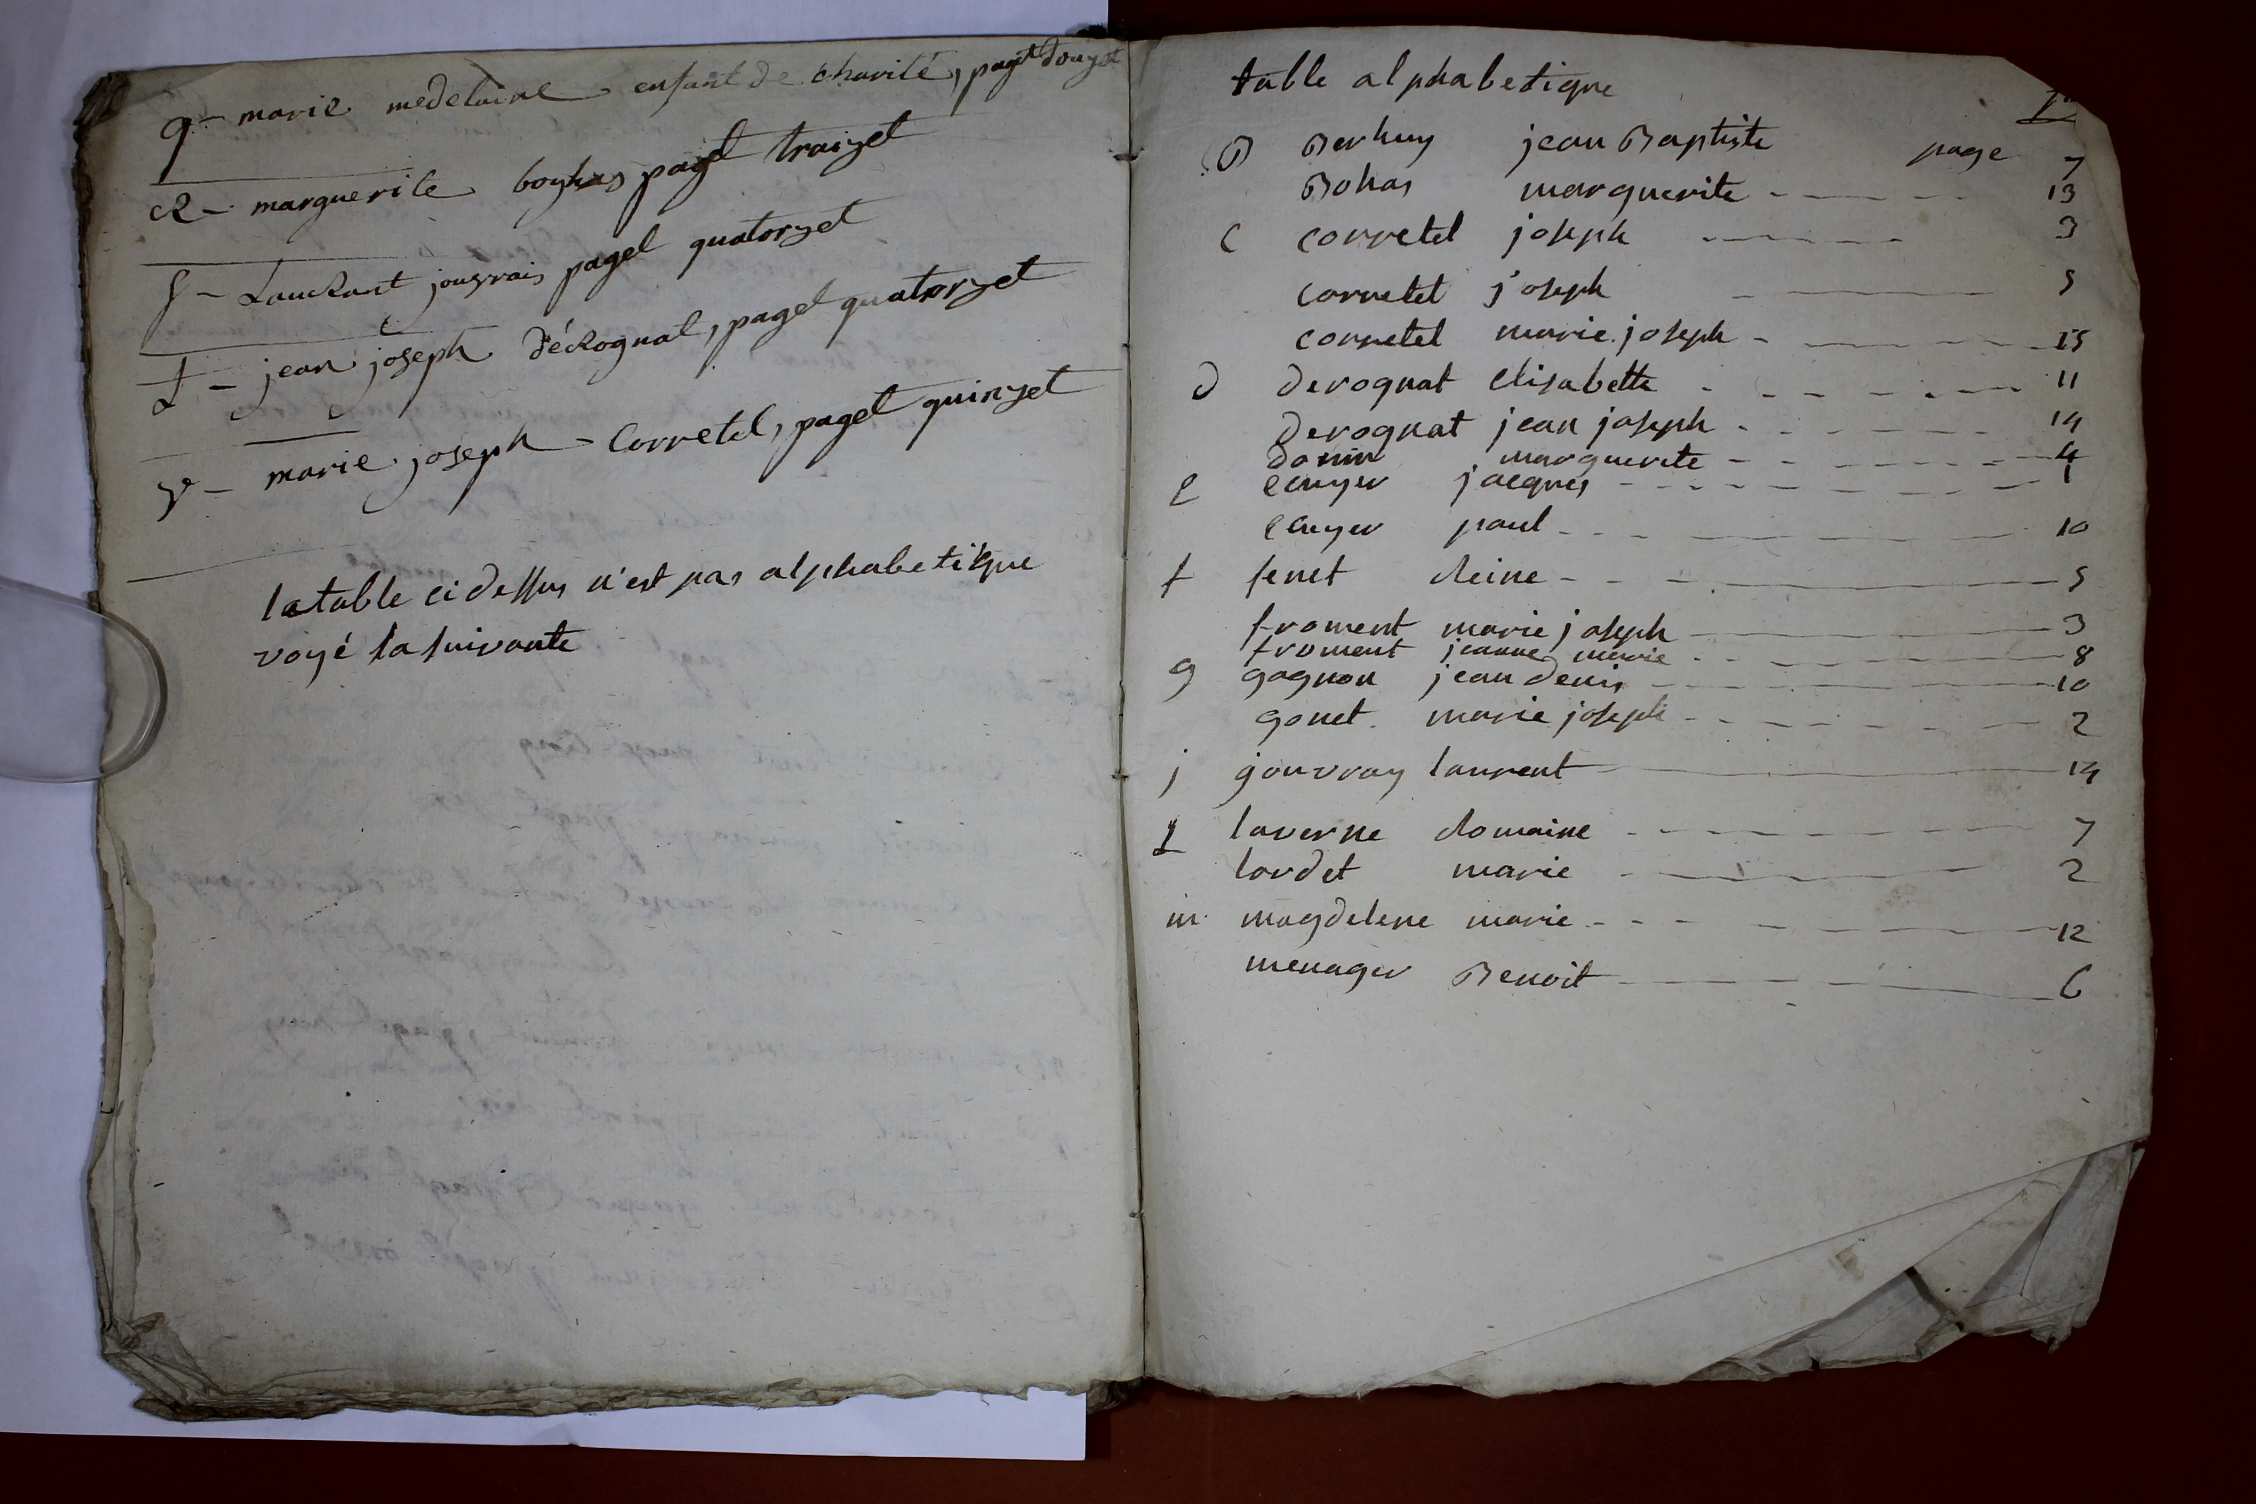 q - marie medelaine enfant de charité, paget douzet
R - marguerite boyhas paget traizet
S - Laurant jouvrais paget quatorzet
t - jean joseph dérognat, paget quatorzet
v - marie joseph Corretel, paget quinzet
la table ci dessus n'est pas alphabetique
voyé la suivante
table alphabetique
B Berhuy jean Baptiste page 7
Bohas marguerite 13
C corretel joseph 3
corretel joseph 5
corretel marie joseph 15
d derognat elisabette 11
derognat jean joseph 14
donin marguerite 4
E ecuyer jacques 1
ecuyer paul 10
f fenet Reine 5
froment marie joseph 3
froment jeanne marie 8
g gagnon jean denis 10
gonet marie joseph 2
j jouvray laurent 14
L laverne Romaine 7
lordet marie 2
m magdelene marie 12
menager Benoit 6